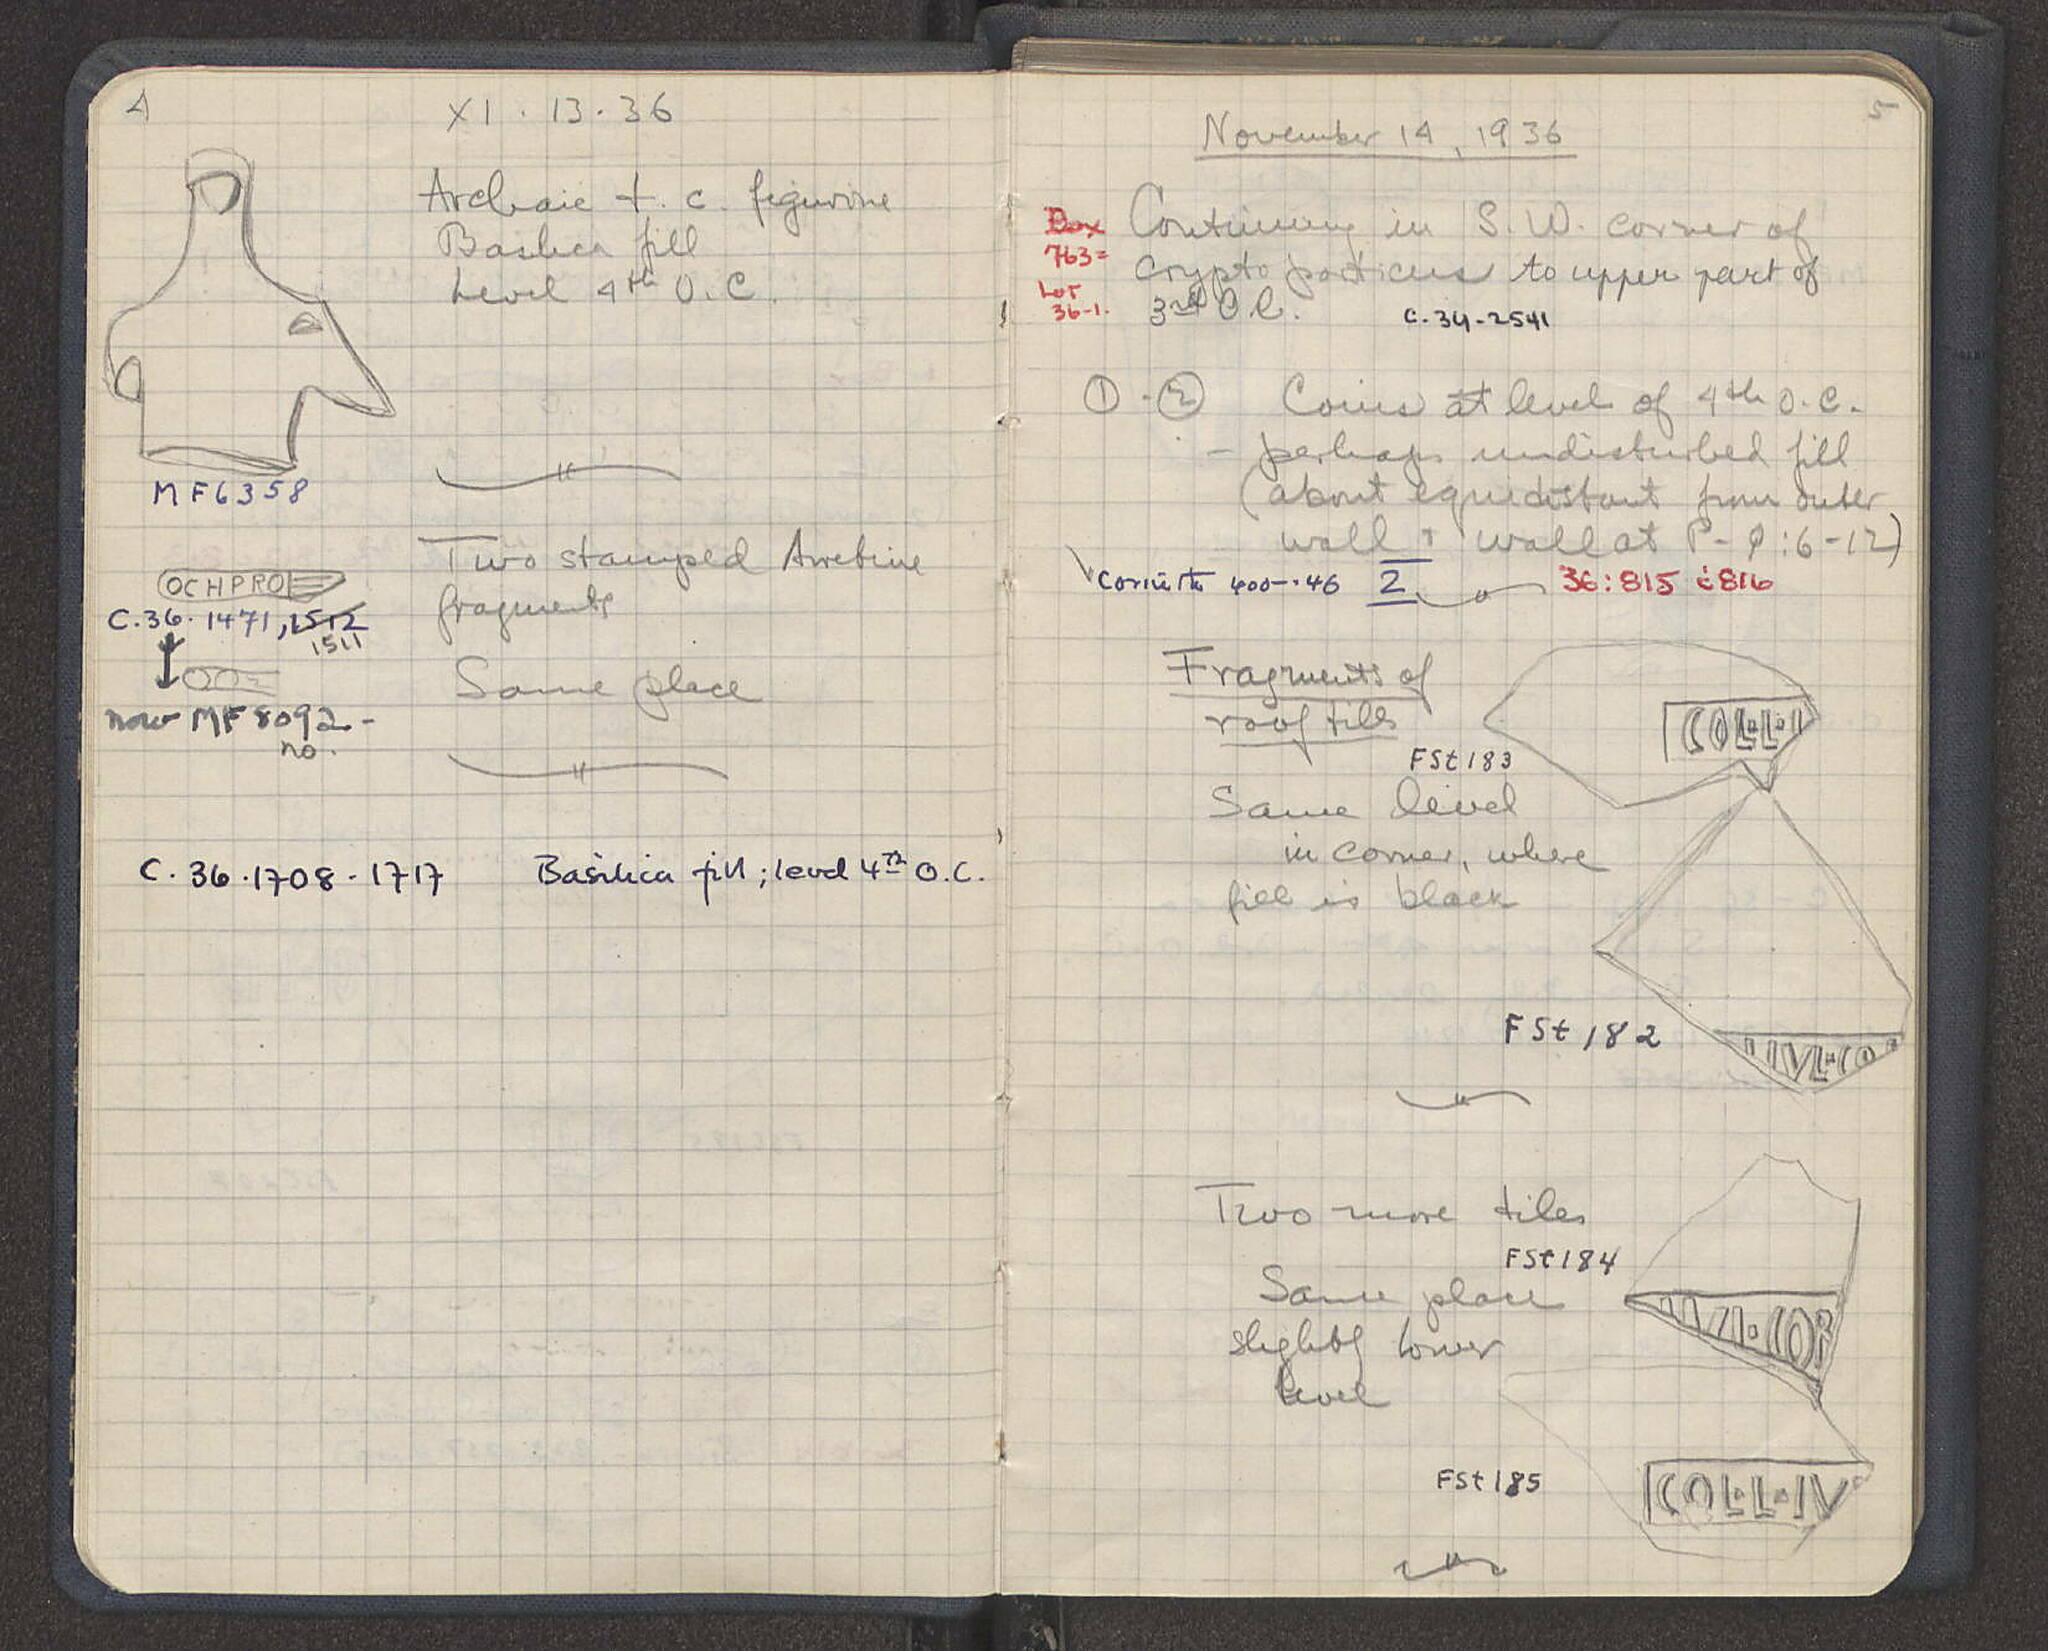 4
XI. 13. 36
Archaic t. c. figurine
Basilica fill
Level 4th O. C.
MF6358
Two stamped Arretine
fragments
OCHPRO
C.36. 1471, 1512
1511
Same place
now MF8092 -
no.
C. 36. 1708 - 1717 Basilica fill; level 4th O.C.
5
November 14, 1936
Box
763=
Lot
36-1.
Continuing in S. W. corner of
cryptoporticus to upper part of
3rd O.C. C. 34-2541
① - ② Coins at level of 4th O. C.
- perhaps undisturbed fill
(about equidistant from outer
wall + wall at P-Q:6-12)
Corinth 400-146 2 36:815 & 816
Fragments of
roof tiles
COL·L·I
FSt 183
Same level
in corner, where
fill is black
FSt 182
IVL·CO
Two more tiles
FSt 184
Same place
slightly lower
level
IVL·COR
FSt 185
COL·L·IV